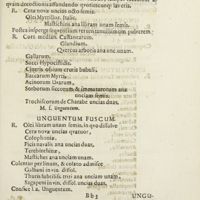 quam decoctioni affundendo quotiescunq; laueris.
R. Cera nouæ vncias octo semis.
Olei Myrtillor. Italic.
Mastichini ana libram vnam semis.
Postea insperge sequentium rerum tenuissimum puluerem.
R. Cort. median. Castanearum.
Glandium.
Quercus arboris ana vnc. vnam.
Gallarum.
Succi Hypocisthidis.
Cineris ossium cruris bubuli.
Baccarum Myrti.
Acinorum Vuarum.
Sorborum siccorum & immaturorum ana
vnciam semis.
Trochiscorum de Charabe vncias duas.
M. f. Vnguentum.
UNGUENTUM FUSCUM.
R. Olei libram vnam semis. in quo dissolue
Ceræ nouæ vncias quatuor,
Colophoniæ.
Picis naualis ana vncias duas.
Terebinthinæ.
Mastiches ana vnciam vnam.
Colentur per linum, & colato admisce
Galbani in vin. dissol.
Thuris subtiliss. triti ana vnciam vnam.
Sagapeni in vin. dissol. vncias duas.
Confice l. a. Unguentum.
Bb 3 UNGU-